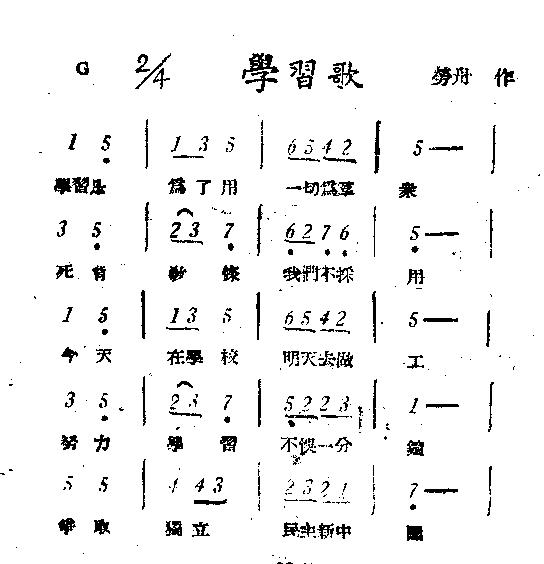 G 2/4 學習歌 勞舟 作
1 5 | 1 3 5 | 6 5 4 2 | 5 — |
學習是 爲了用 一切爲羣衆
3 5 | 2 3 7 | 6 2 7 6 | 5 — |
死背 教條 我們不採用
1 5 | 1 3 5 | 6 5 4 2 | 5 — |
今天 在學校 明天去做工
3 5 | 2 3 7 | 5 2 2 3 | 1 — |
努力 學習 不悞一分鐘
5 5 | 4 4 3 | 2 3 2 1 | 7 — |
爭取 獨立 民主新中國